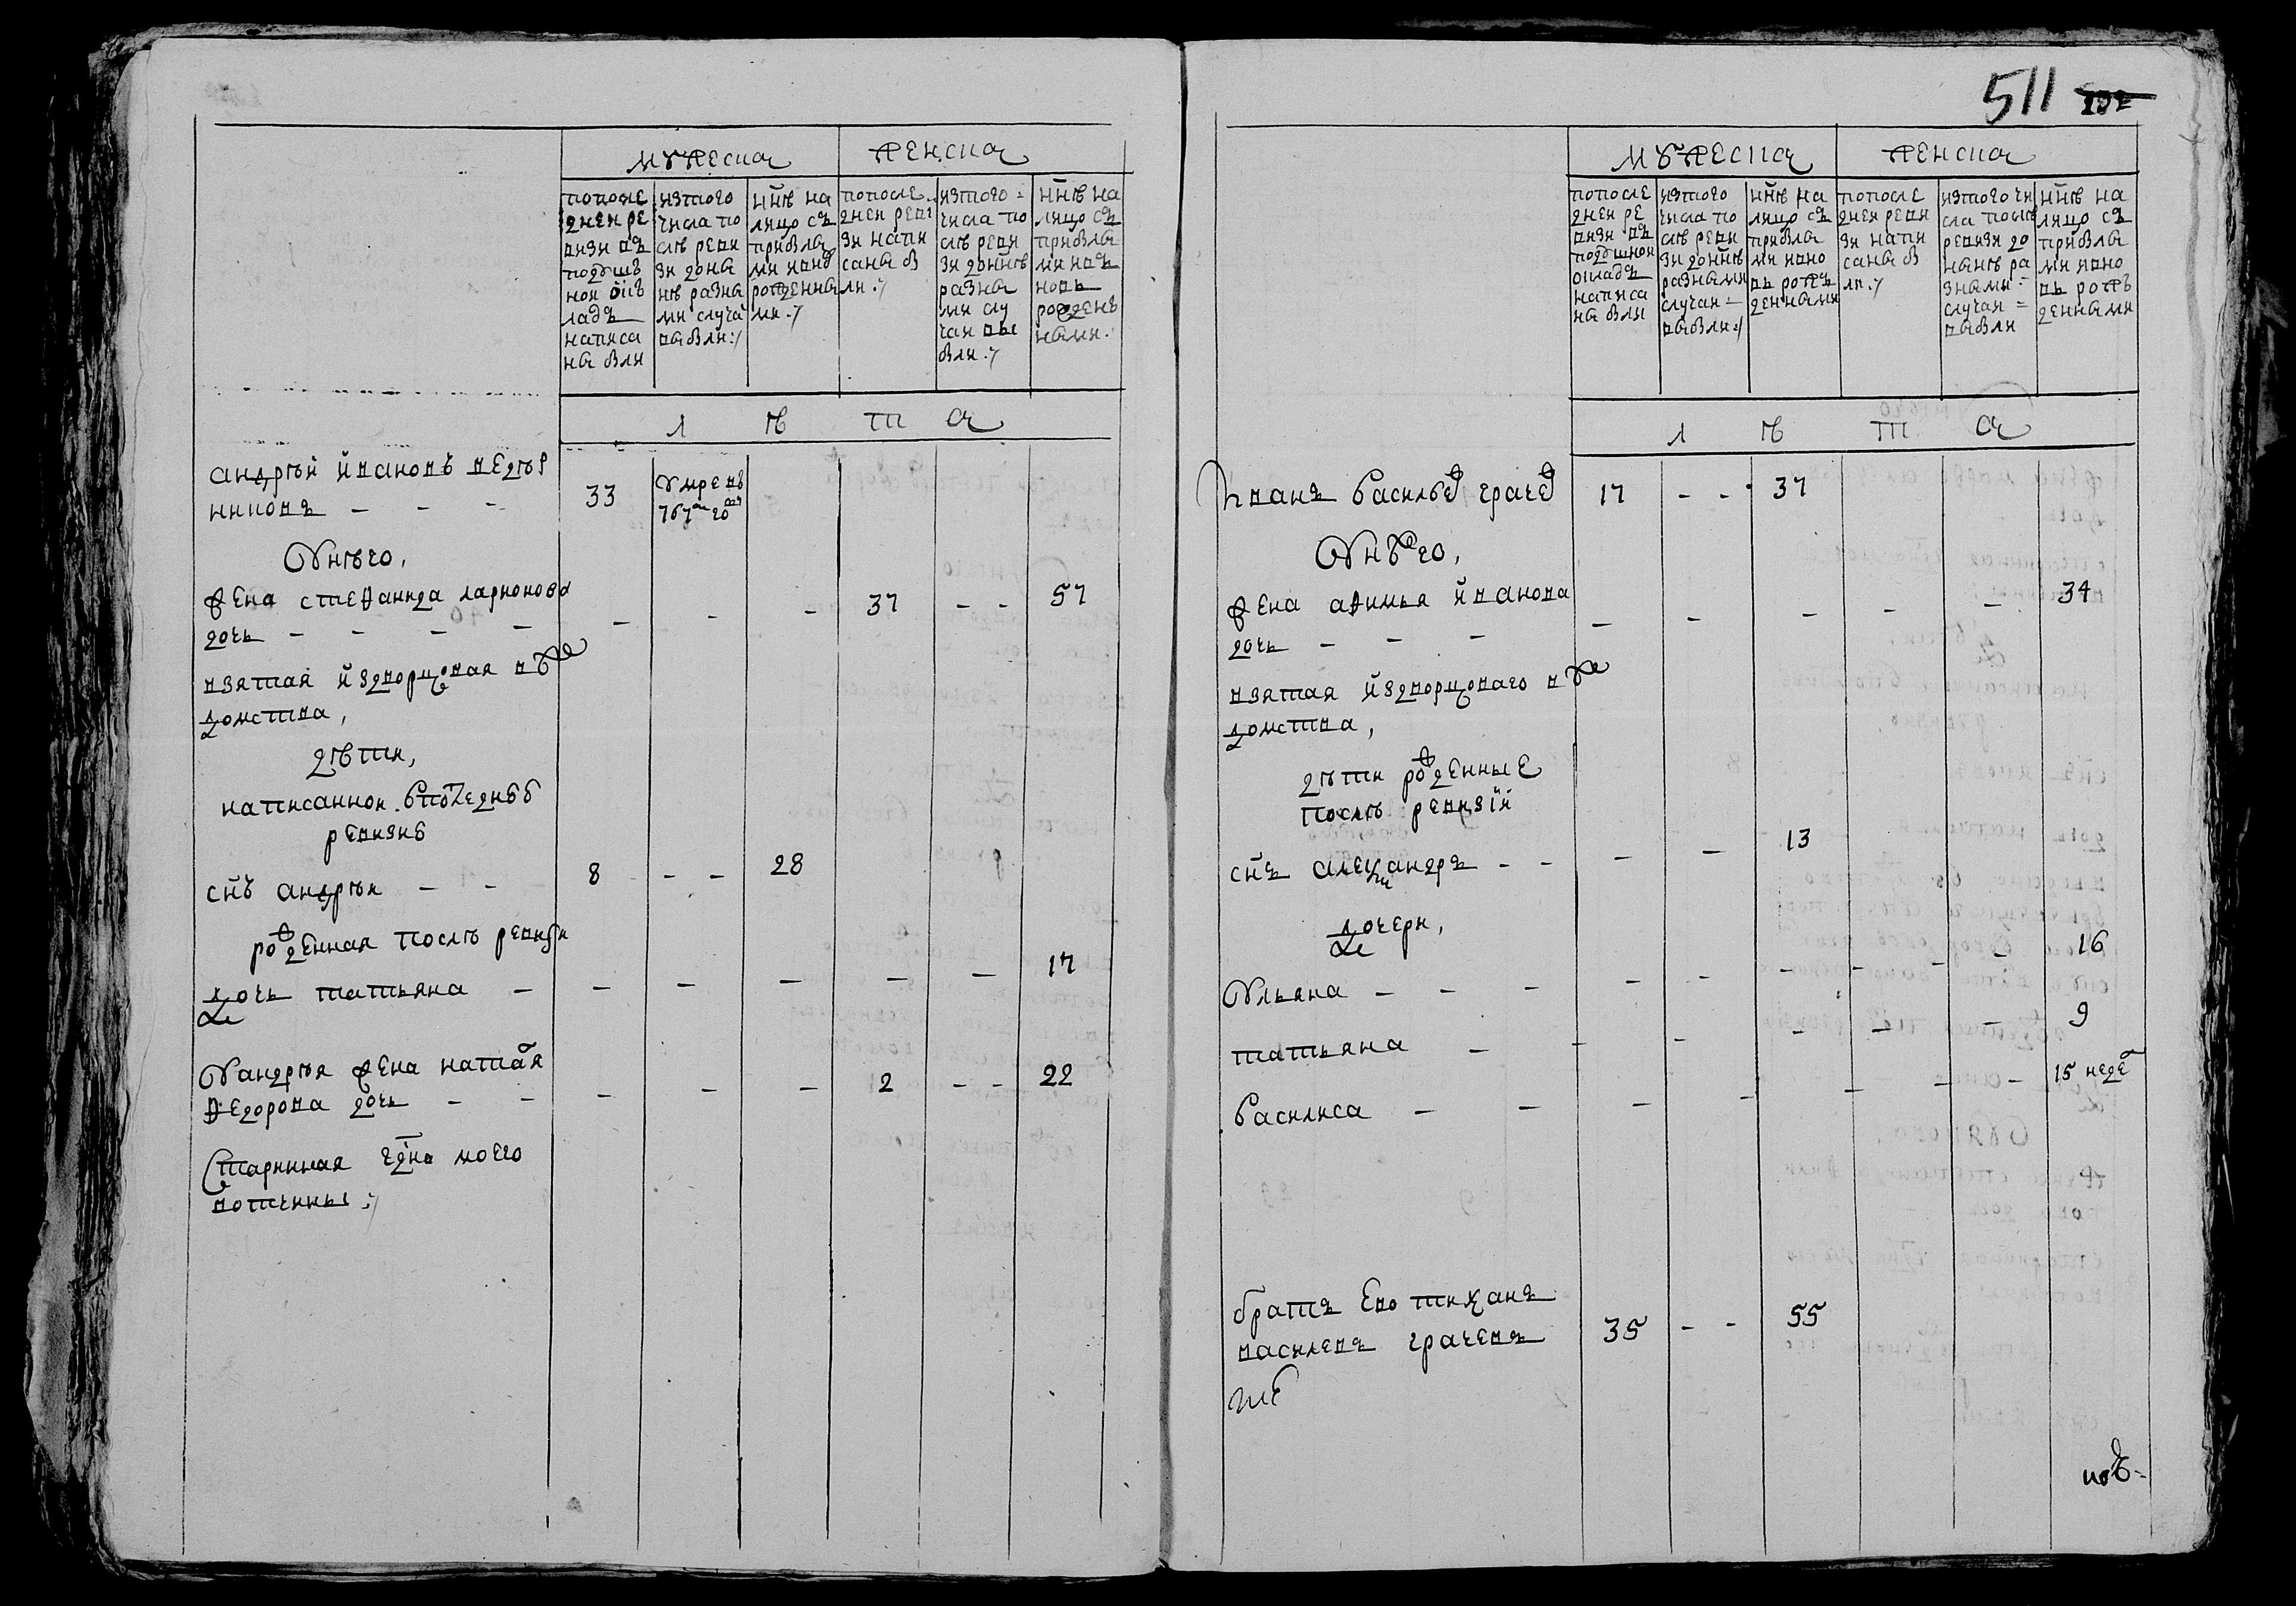 мужеска
женска
попосле
дней ре
визи въ
подуше
ной ок
ладъ
написа
ны были
изтого
числа по
слѣ реви
зи доны
нѣ разны
ми случаи
выбыли
ннѣ на
лицо съ
прибылы
ми и вно
рожденны
ми
попосле
дней реви
зи напи
саны бы
ли
изтого
числа по
слѣ реви
зи доннѣ
разны
ми слу
чаи вы
были
ннѣ на
лицо съ
прибылы
ми и въ
новь
рожденъ
ными
лѣта
андрѣй ивановъ
33 умре въ
767м году
Унѣго,
жена степанида ларионова
дочь 37 57
взятая издворцовая вѣ
домства,
дѣти,
написанной впоследнеѣ
ревизиѣ
снъ андрѣй 8 28
рожденная послѣ ревизи
дочь татьяна 17
Уандрѣя жена наталя
федорова дочь 2 22
Старинная
вотчины
511
мужеска
женска
попосле
дней ре
визи въ
подушной
окладъ
написа
ны были
изтого
числа по
слѣ реви
зи доннѣ
разными
случаи
выбыли
ннѣ на
лицо съ
прибылы
ми и вно
вь рожъ
денными
попосле
дней реви
зи напи
саны бы
ли
изтого чи
сла послѣ
ревизи до
нынѣ ра
зными
случаи
выбыли
ннѣ на
лицо съ
прибылы
ми и вно
вь рожъ
денными
лѣта
Иванъ васильев грачев 17 37
Унѣго,
жена афимья иванова
дочь 34
взятая издворцоваго вѣ
домства,
дѣти рожденные
послѣ ревизiи
снъ александръ 13
дочери,
Ульяна 16
татьяна 9
василиса 15 недел
братъ ево тиханъ
василевъ грачевъ 35 55